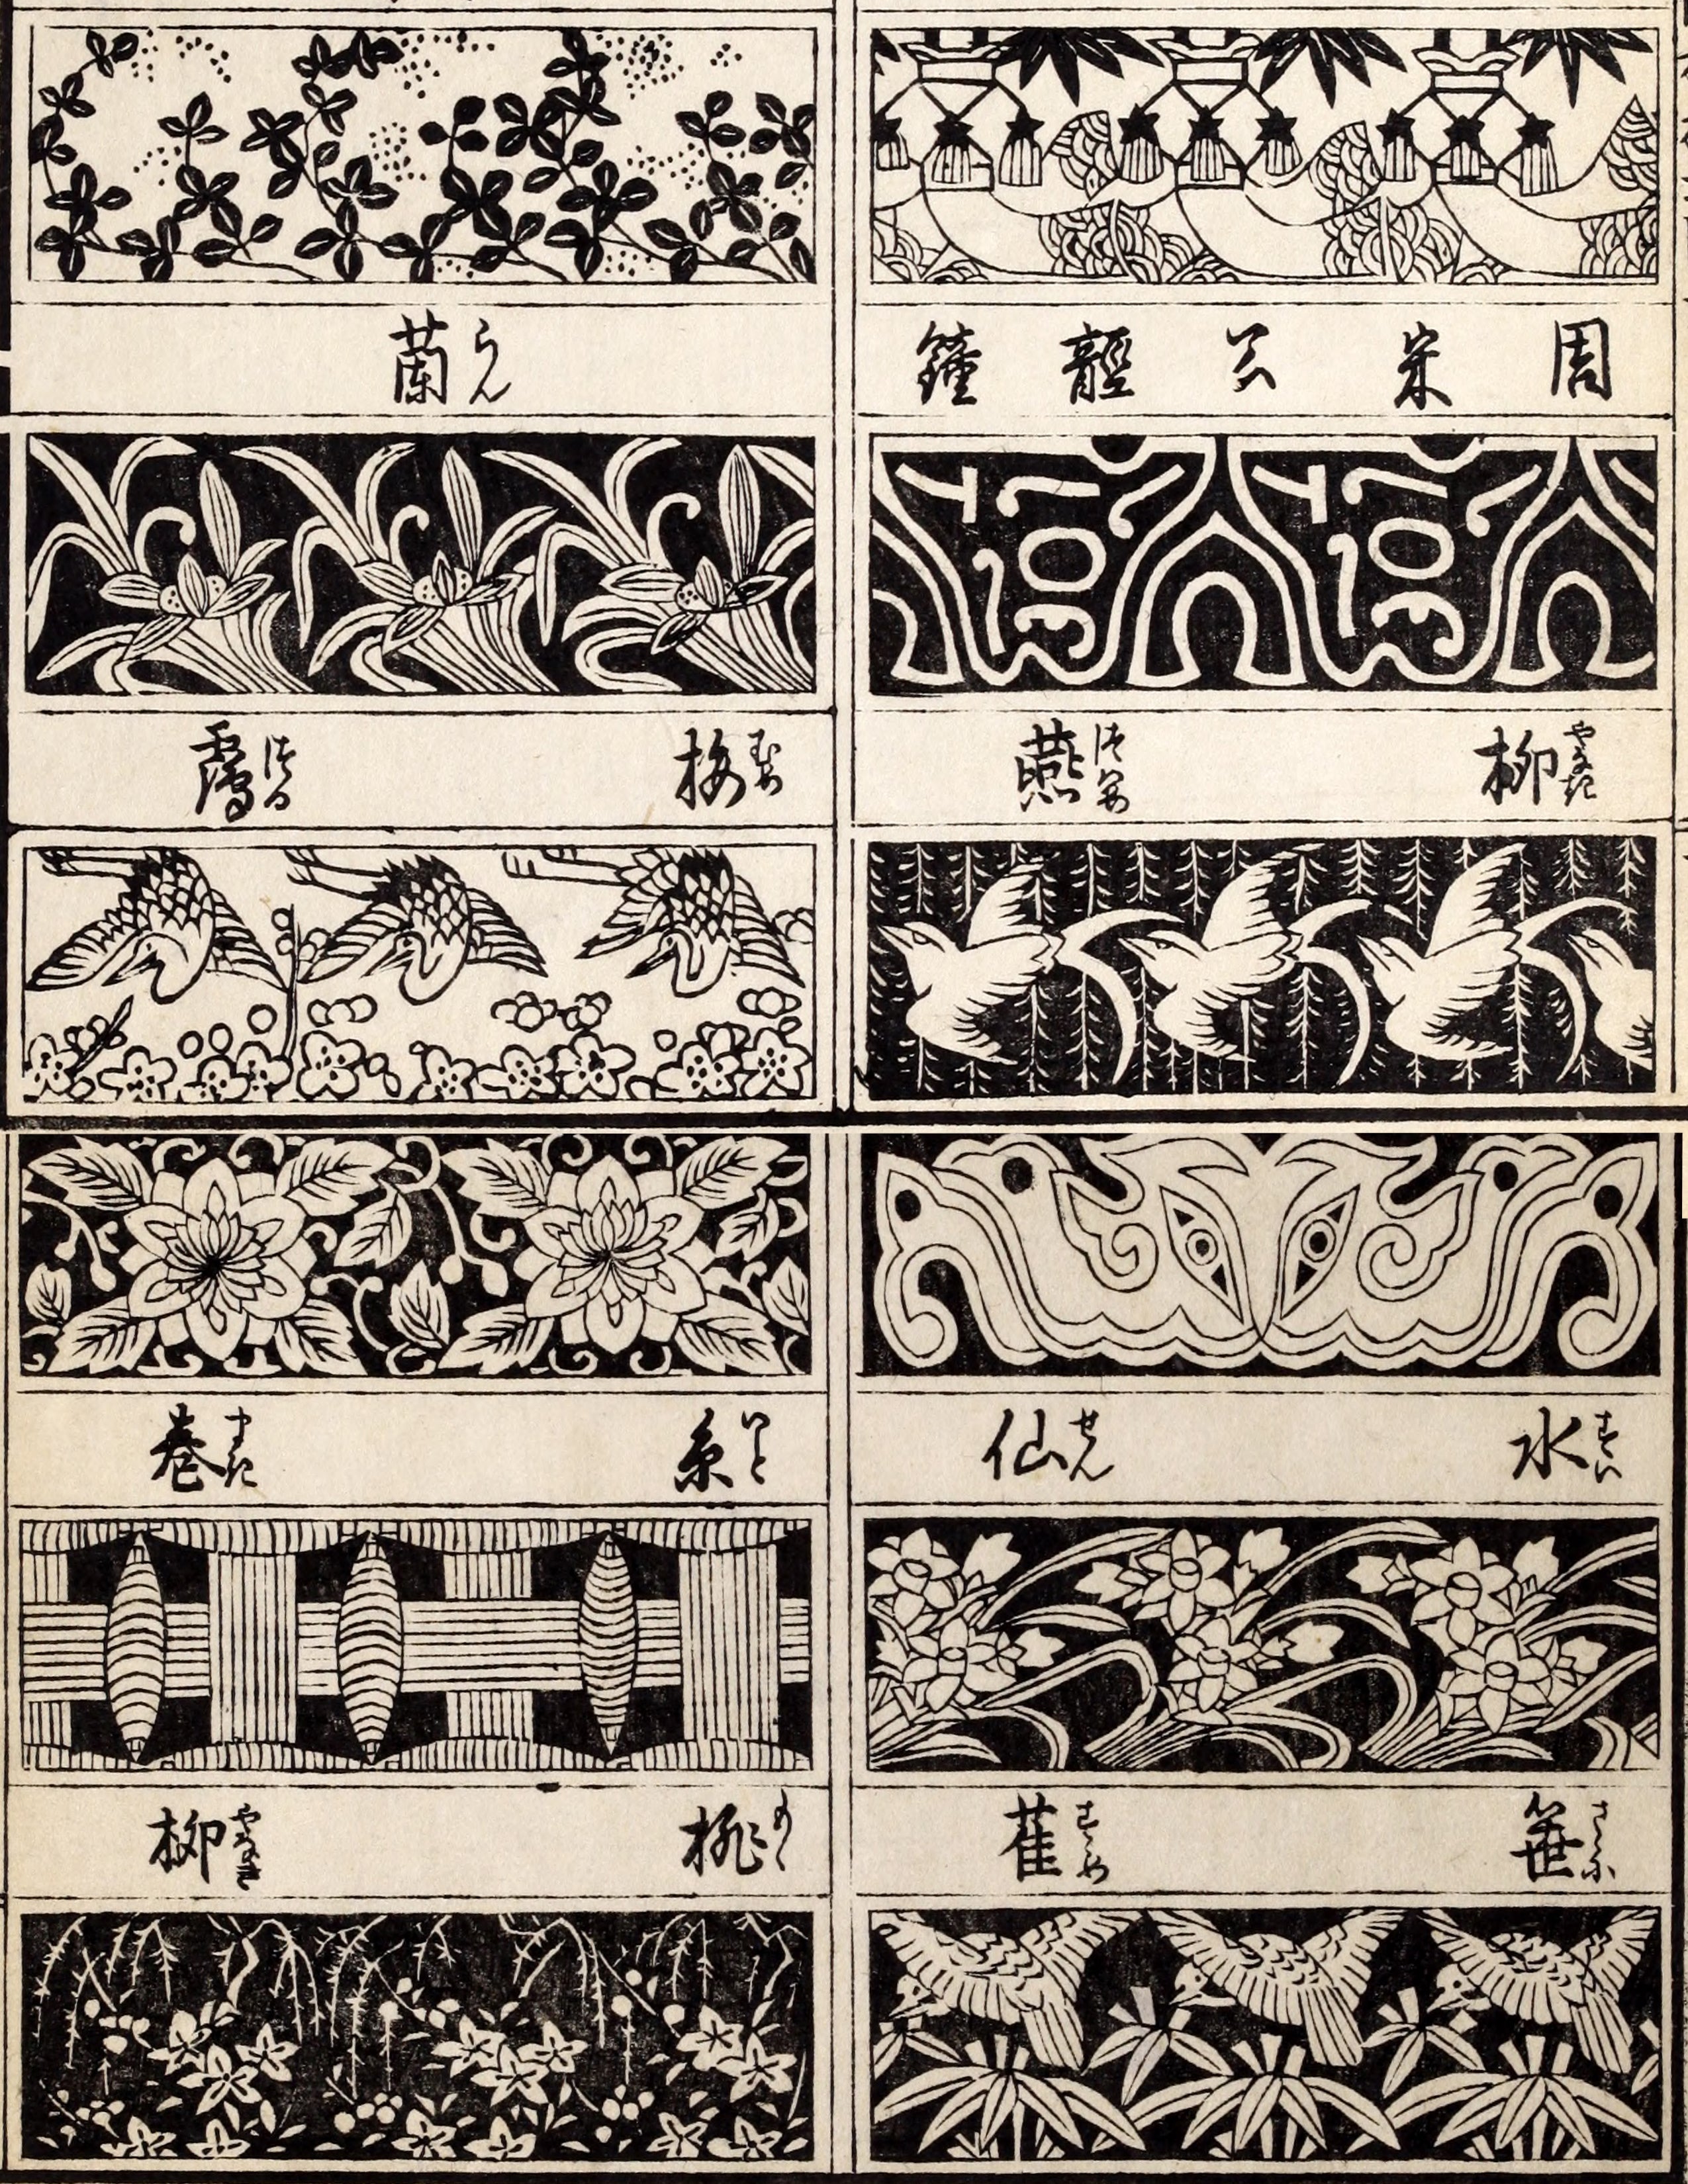 周宋公䪫鐘
蘭 らん
柳 やなぎ 燕 つばめ
梅 むめ 靏 つる
水 すい 仙 せん
糸 いと 巻 まき
笹 さゝ 雀 すゞめ
桃 もゝ 柳 やなぎ